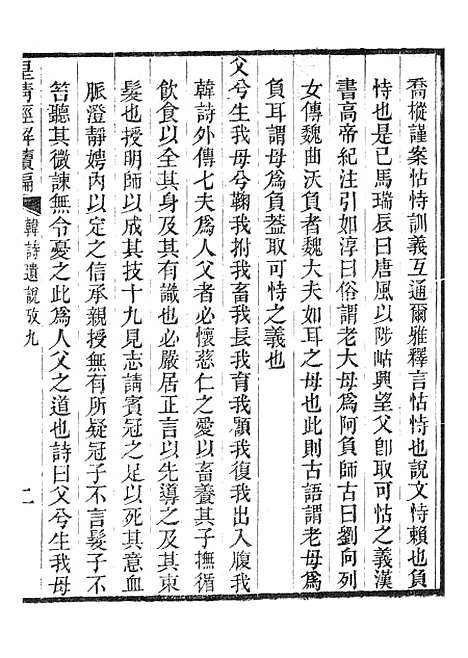 喬樅謹案怙恃訓義互通爾雅釋言怙恃也說文恃賴也負
恃也是已馬瑞辰曰唐風以陟岵興望父卽取可怙之義漢
書高帝紀注引如淳曰俗謂老大母爲阿負師古曰劉向列
女傳魏曲沃負者魏大夫如耳之母也此則古語謂老母爲
負耳謂母爲負葢取可恃之義也
父兮生我母兮鞠我拊我畜我長我育我顧我復我出入腹我
韓詩外傳七夫爲人父者必懷慈仁之愛以畜養其子撫循
飲食以全其身及其有識也必嚴居正言以先導之及其束
髮也授明師以成其技十九見志請賓冠之足以死其意血
脈澄靜娉內以定之信承親授無有所疑冠子不言髮子不
笞聽其微諫無令憂之此爲人父之道也詩曰父兮生我母
皇清經解續編
韓詩遺說攷九
二